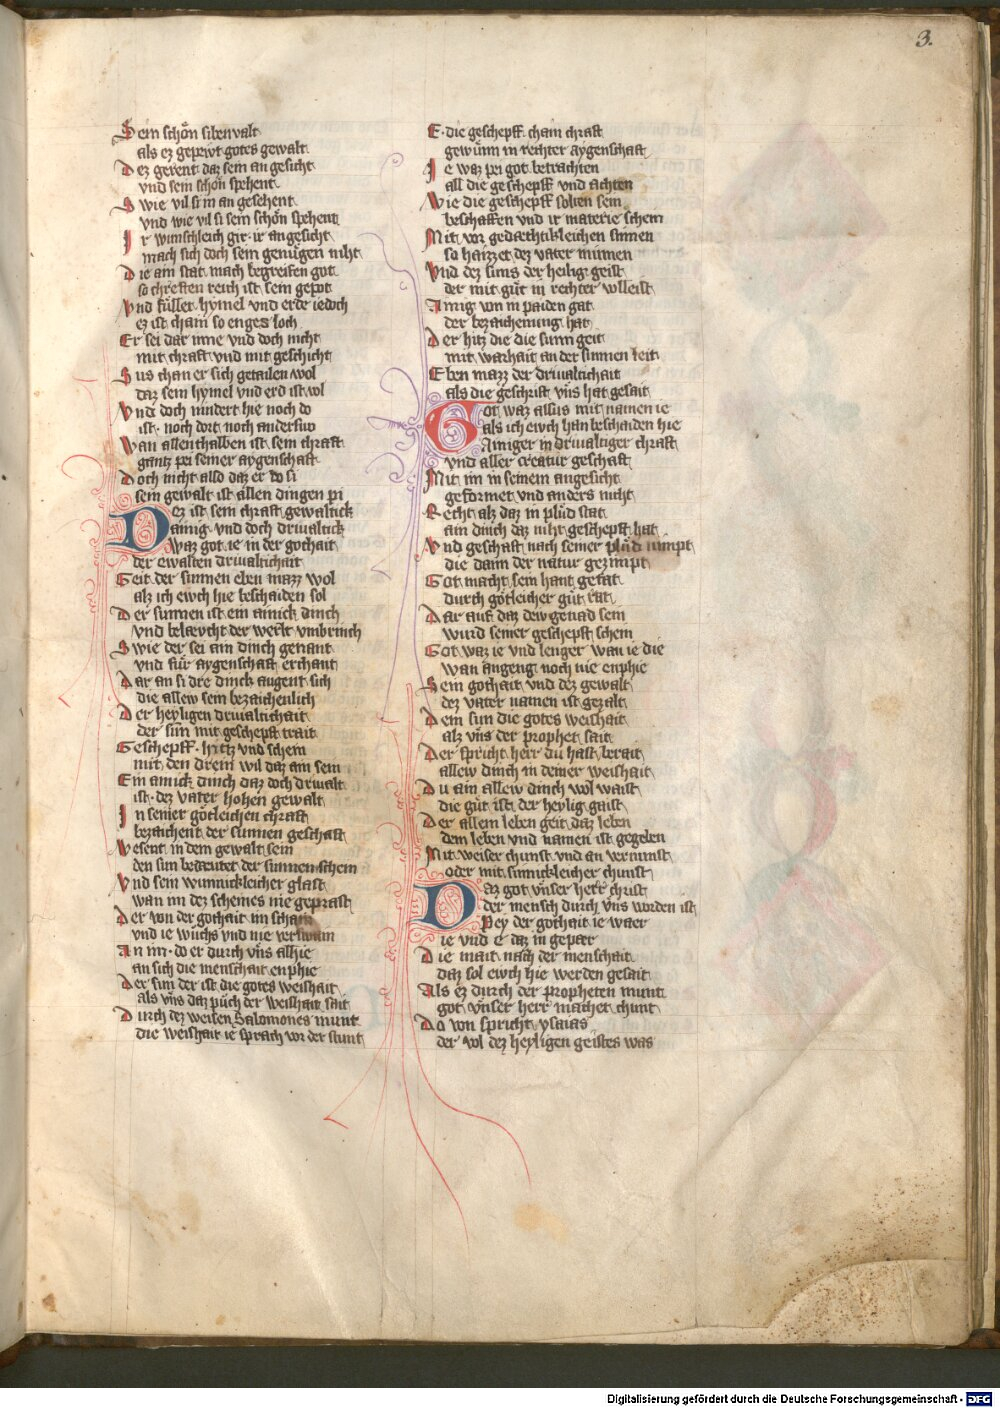 3.
Sein schön sibenvalt
als ez gepewt gotes gewalt
Dez gerent daz sein an gesicht
vnd sein schön spehent
Swie vil si in an gesehent
vnd wie vil si sein schön spehent
Ir wunschleich gir ir angesicht
mach sich doch sein genügen niht
Die ain stat mach begreifen got
so chreften reich ist sein gepot
Vnd füllet hymel vnd erde iedoch
ez ist chain so enges loch
Er sei dar inne vnd doch nicht
mit chraft vnd mit geschicht
Sus chan er sich getailen wol
daz sein hymel vnd erd ist vol
Vnd doch nindert hie noch do
ist noch dort noch anderswo
Wan allenthalben ist sein chraft
gantz pei seiner aygenschaft
Doch nicht alsd daz er do si
sein gewalt ist allen dingen pi
Dez ist sein chraft gewaltick
Dainig vnd doch driualtick
Waz got ie in der gothait
der ewalten driualtichait
Geit der sunnen eben mazz wol
alz ich ewch hie beschaiden sol
Der sunnen ist ein ainick dinch
vnd belæucht der werlt vmbrinch
Swie der sei ain dinch genant
vnd für aygenschaft erchant
Dar an si dre dinck augent sich
die allew sein bezaichenlich
Der heyligen driualtichait
der sun mit geschepft trait
Geschepff hitz vnd schein
mit den drein wil daz ain sein
Ein ainick dinch daz doch driualt
ist dez vater hohen gewalt
In seiner götleichen chraft
bezaichent der sunnen geschaft
Wesent in dem gewalt sein
den sun bedeutet der sunnen schein
Vnd sein wunnickleicher glast
wan im dez scheines nie geprast
Der von der gothait im schain
vnd ie wuchs vnd nie verswain
An im do er durch vns alhie
an sich die menschait enphie
Der sun der ist die gotes weishait
als vns daz puch der weishait sait
Durch dez weisen Salomones munt
die weishait ie sprach vor der stunt
E die geschepff chain chraft
gewunn in rechter aygenschaft
Ie waz pei got betrachten
all die geschepff vnd achten
Wie die geschepff solten sein
beschaffen vnd ir materie schein
Mit vor gedæchtikleichen sinnen
so haizzet dez vater minnen
Vnd dez suns der heilig geist
der mit güt in rechter volleist
Ainig von in paiden gat
der bezaichenung hat
Der hitz die die sunn geit
mit warhait an der sunnen leit
Eben mazz der driualtichait
als die geschrift vns hat gesait
Got waz alsus mit namen ie
als ich ewch han beschaiden hie
Ainiger in driualtiger chraft
vnd aller creatur geschaft
Mit im in seinem angesicht
geformet vnd anders nicht
Recht alz daz in plüd stat
ain dinch daz niht geschepft hat
Vnd geschaft nach seiner plüd nimpt
die dann der natur gezimpt
Got macht sein hant getat
durch götleicher güt rat
Dar auf daz dew genad sein
wurd seiner geschepft schein
Got waz ie vnd lenger wan ie die
wan angeng noch nie enphie
Sein gothait vnd dez gewalt
dez vater namen ist gezalt
Dem sun die gotes weishait
alz vns der prophet sait
Der spricht herr du hast berait
allew dinch in deiner weishait
Du ain allew dinch wol waist
die güt ist der heylig gaist
Der allem leben geit daz leben
dem leben vnd namen ist gegeben
Mit weiser chunst vnd an vernunst
oder mit sinnickleicher chunst
Daz got vnser herr christ
der mensch durch vns worden ist
Pey der gothait ie waer
ie vnd e daz in gepær
Die mait nach der menschait
daz sol ewch hie werden gesait
Als ez durch der propheten munt
got vnser herr macher chunt
Do von spricht ysaias
der vol dez heyligen geistes was
Digitalisierung gefördert durch die Deutsche Forschungsgemeinschaft - DFG